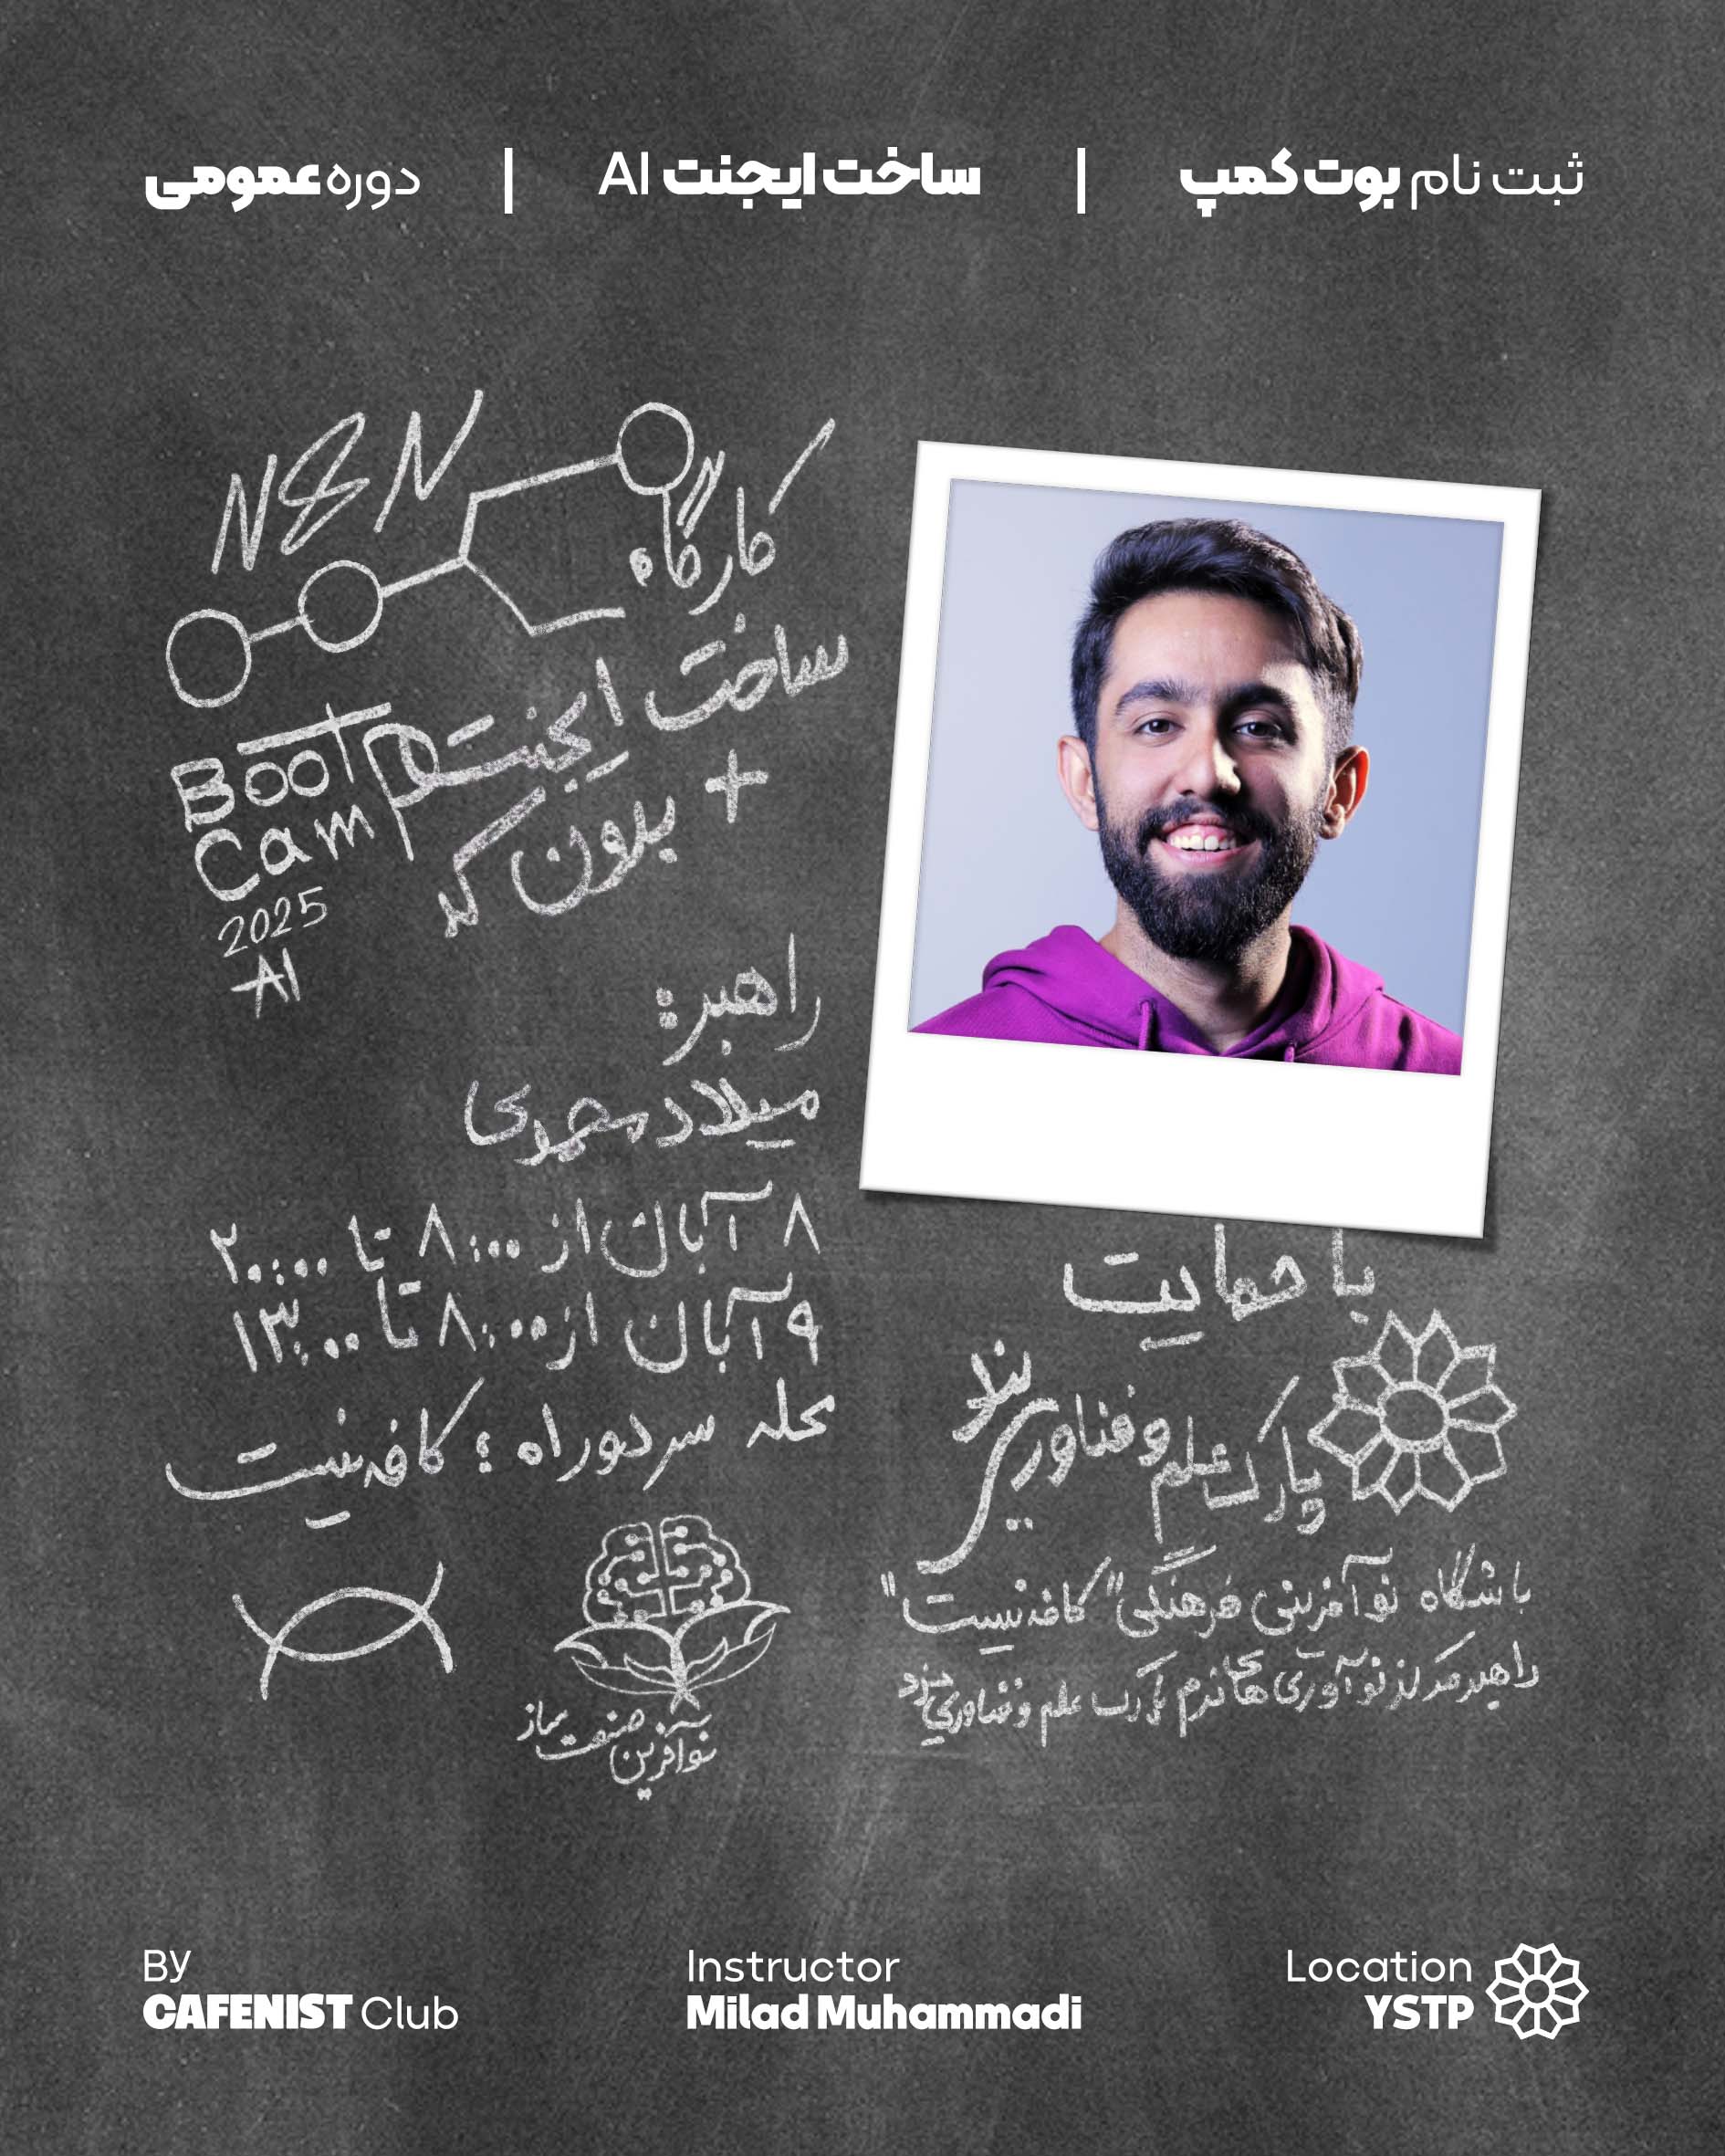 ثبت نام بوت کمپ | ساخت ایجنت AI | دوره عمومی
N8N
کارگاه
ساخت ایجنت
+ بدون کد
Boot
Camp
2025
AI
راهبر:
میلاد محمدی
۸ آبان از ۸:۰۰ تا ۲۰:۰۰
۹ آبان از ۸:۰۰ تا ۱۳:۰۰
محله سردوراه ؛ کافه‌نیست
با حمایت
پارک علم و فناوری یزد
باشگاه نوآفرینی فرهنگی "کافه‌نیست"
راهبر مرکز نوآوری هانرم پارک علم و فناوری یزد
نوآفرین صنعت ساز
By
CAFENIST Club
Instructor
Milad Muhammadi
Location
YSTP